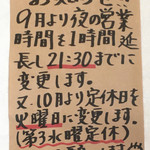 お知らせ
9月より夜の営業
時間を1時間延
長し21:30までに
変更します。
又、10月より定休日を
火曜日に変更します。
(第3水曜定休)